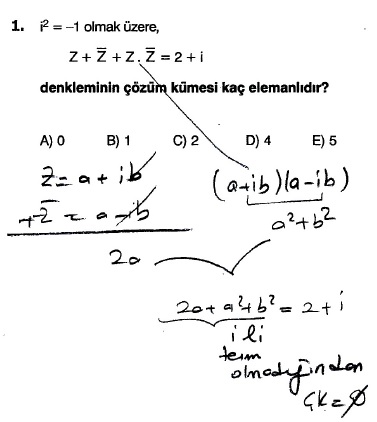 1. i² = –1 olmak üzere,
Z + Z̅ + Z . Z̅ = 2 + i
denkleminin çözüm kümesi kaç elemanlıdır?
A) 0 B) 1 C) 2 D) 4 E) 5
Z = a + ib
+ Z̅ = a - ib
2a
(a+ib)(a-ib)
a²+b²
2a + a²+b² = 2 + i
i li
terim
olmadığından
ÇK = ∅